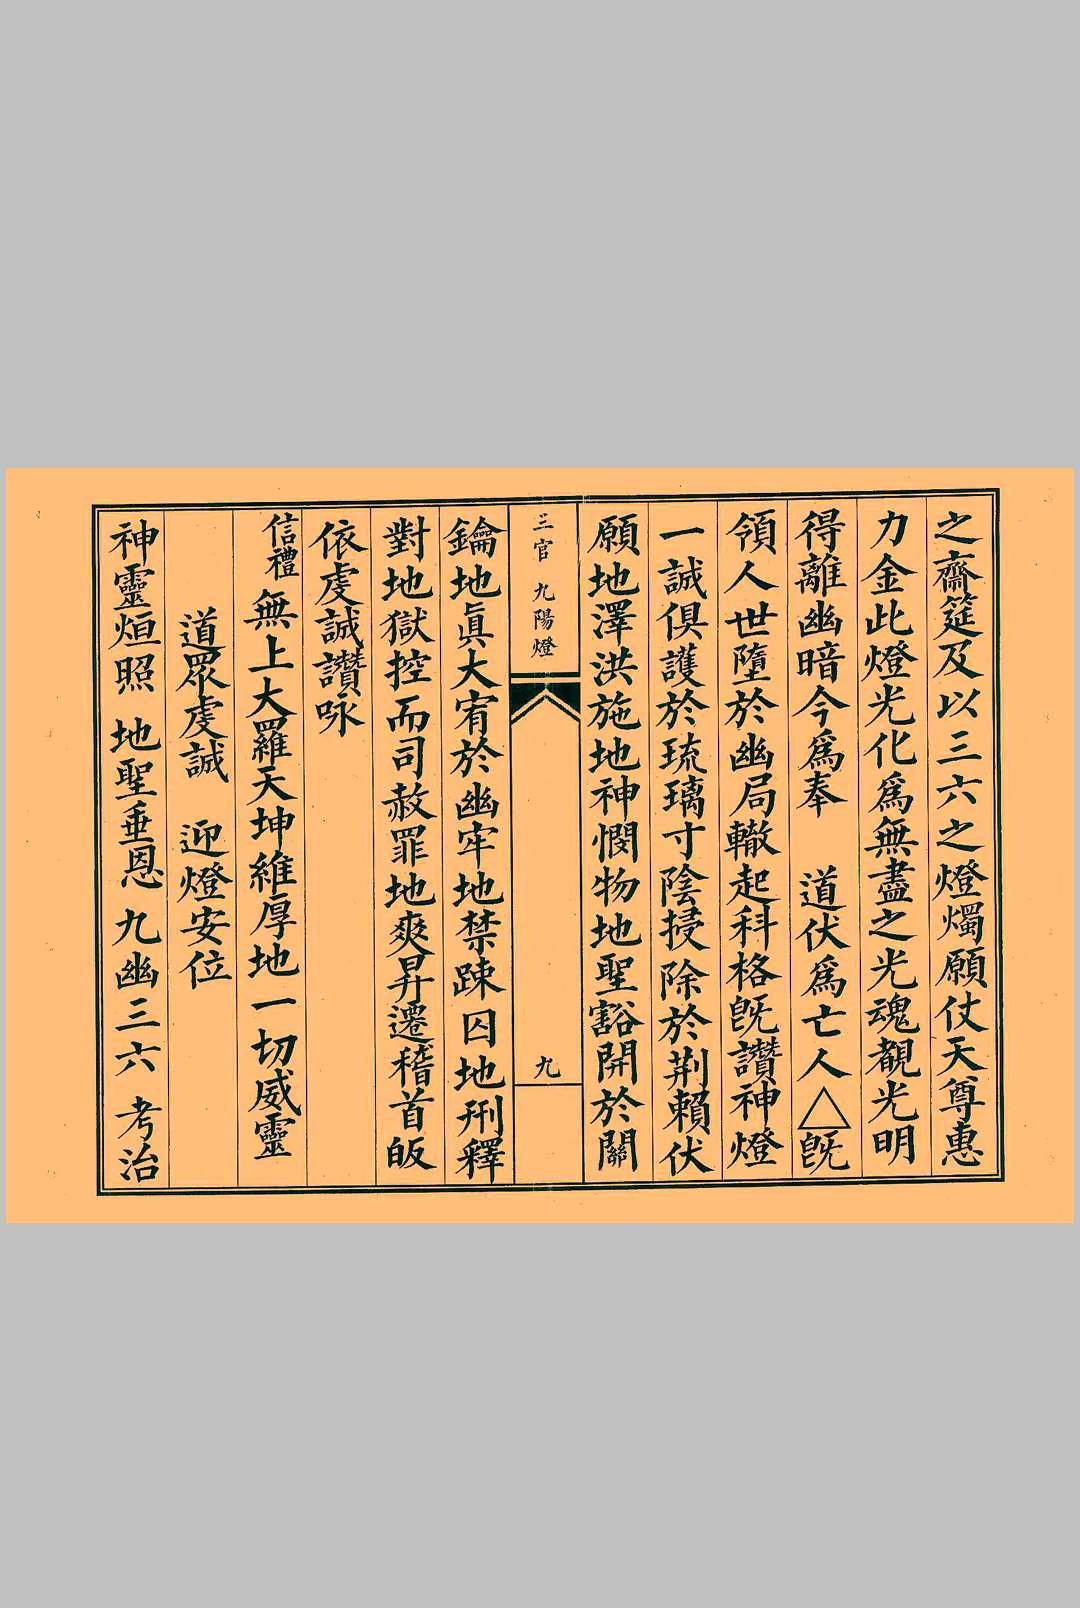 之齋筵及以三六之燈燭願仗天尊惠
力金此燈光化爲無盡之光魂覩光明
得離幽暗今爲奉 道伏爲亡人△旣
領人世墮於幽局轍起科格旣讚神燈
一誠俱護於琉璃寸陰掃除於荆賴伏
願地澤洪施地神憫物地聖豁開於關
三官 九陽燈
九
鑰地眞大宥於幽牢地禁踈囚地刑釋
對地獄控而司赦罪地爽昇遷稽首皈
依虔誠讚咏
信禮 無上大羅天坤維厚地一切威靈
道眾虔誠 迎燈安位
神靈烜照 地聖垂恩 九幽三六 考治